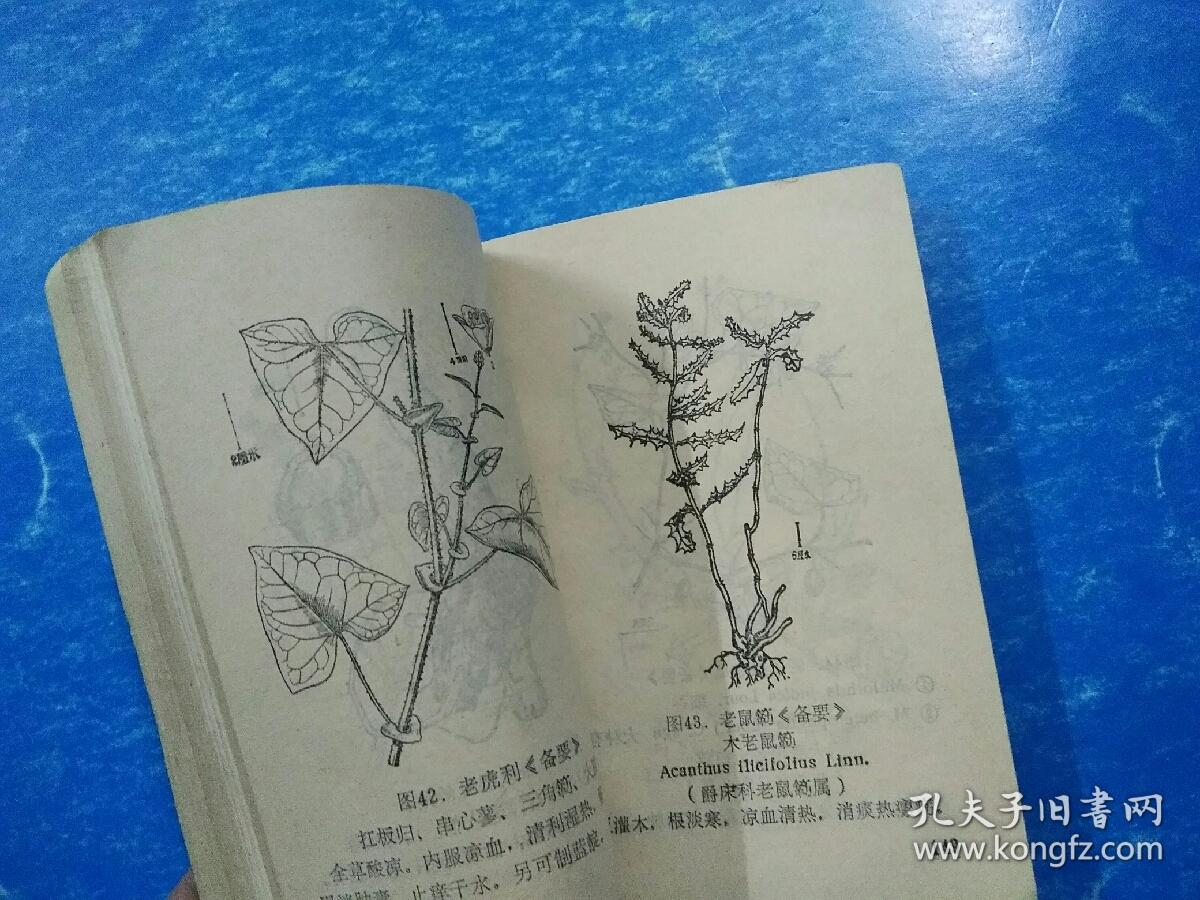 2厘米
图42．老虎利《备要》
扛板归、串心蓼、三角簕、
全草酸凉。内服凉血，清利湿热，
止痒干水。另可制蓝靛
图43．老鼠簕《备要》
木老鼠簕
Acanthus ilicifolius Linn.
（爵床科老鼠簕属）
灌木，根淡寒，凉血清热，消痰热
孔夫子旧书网
www.kongfz.com